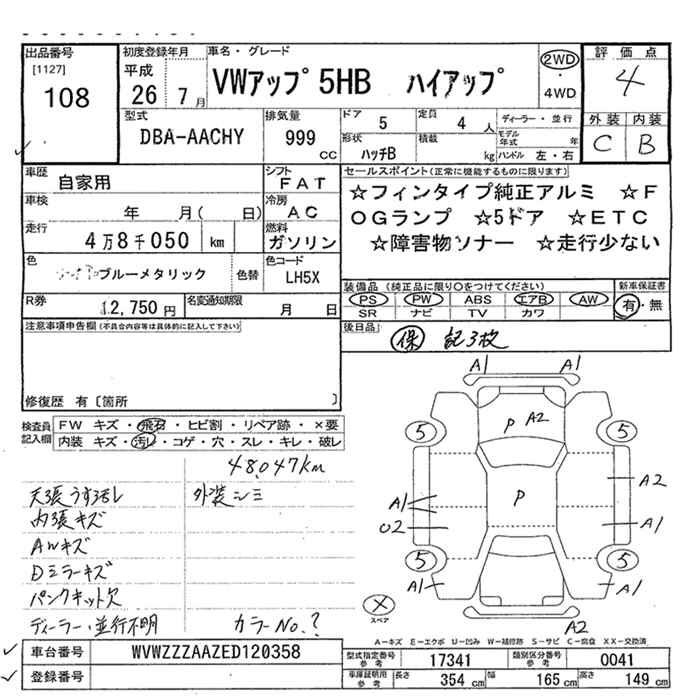 出品番号 初度登録年月 車名・グレード 評価点
[1127] 108
平成 26 7月
VWアップ 5HB ハイアップ
2WD・4WD
4
外装 内装
C B
型式 DBA-AACHY
排気量 999 CC
ドア 5
定員 4 人
形状 ハッチB
積載 kg
ディーラー・並行
モデル年式 年
ハンドル 左・右
車歴 自家用
シフト FAT
車検 年 月( 日)
冷房 AC
走行 4万8千050 km
燃料 ガソリン
色 ブルーメタリック 色替
色コード LH5X
R券 12,750円
名変通知期限 月 日
セールスポイント(正常に機能するものに限り)
☆フィンタイプ純正アルミ ☆F
OGランプ ☆5ドア ☆ETC
☆障害物ソナー ☆走行少ない
装備品(純正品に限り○をつけてください) 新車保証書
PS PW ABS エアB AW 有・無
SR ナビ TV カワ
後日品 保 記3枚
注意事項申告欄(不具合内容等は具体的に記入して下さい)
修復歴 有〔箇所 〕
検査員記入欄
FW キズ・飛石・ヒビ割・リペア跡・×要
内装 キズ・汚レ・コゲ・穴・スレ・キレ・破レ
48,047km
天張うす汚レ 外装シミ
内張キズ
AWキズ
Dミラーキズ
パンクキット欠
ディーラー・並行不明 カラーNo.?
A1 A1
P A2
5 5
P
A1 A2
02 A1
5 5
A1 A1
× スペア
A2
A-キズ E-エクボ U-凹み W-補修跡 S-サビ C-腐食 XX-交換済
車台番号 WVWZZZAAZED120358
登録番号
型式指定番号 参考 17341 類別区分番号 参考 0041
車庫証明用 参考 長さ 354 cm 幅 165 cm 高さ 149 cm